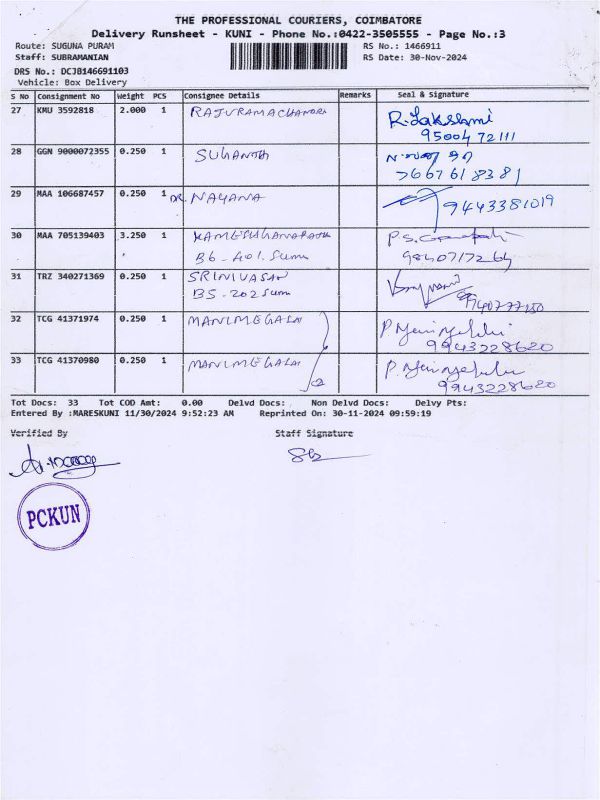 THE PROFESSIONAL COURIERS, COIMBATORE
Delivery Runsheet - KUNI - Phone No.:0422-3505555 - Page No.:3
Route: SUGUNA PURAM RS No.: 1466911
Staff: SUBRAMANIAN RS Date: 30-Nov-2024
DRS No.: DCJB146691103
Vehicle: Box Delivery
S No Consignment No Weight PCS Consignee Details Remarks Seal & Signature
27 KMU 3592818 2.000 1 RAJURAMACHANDRA R. Lakshmi
9500472111
28 GGN 9000072355 0.250 1 SUGANTH
7667618381
29 MAA 106687457 0.250 1 DR. NAYANA 9443381019
30 MAA 705139403 3.250 1 P.S.
B6-401. Sumu
31 TRZ 340271369 0.250 1 SRINIVASAN
B5-202 Sumu
32 TCG 41371974 0.250 1 MANIMEGALAI
9943228620
33 TCG 41370980 0.250 1 MANIMEGALAI
9943228620
Tot Docs: 33 Tot COD Amt: 0.00 Delvd Docs: Non Delvd Docs: Delvy Pts:
Entered By :MARESKUNI 11/30/2024 9:52:23 AM Reprinted On: 30-11-2024 09:59:19
Verified By Staff Signature
PCKUN